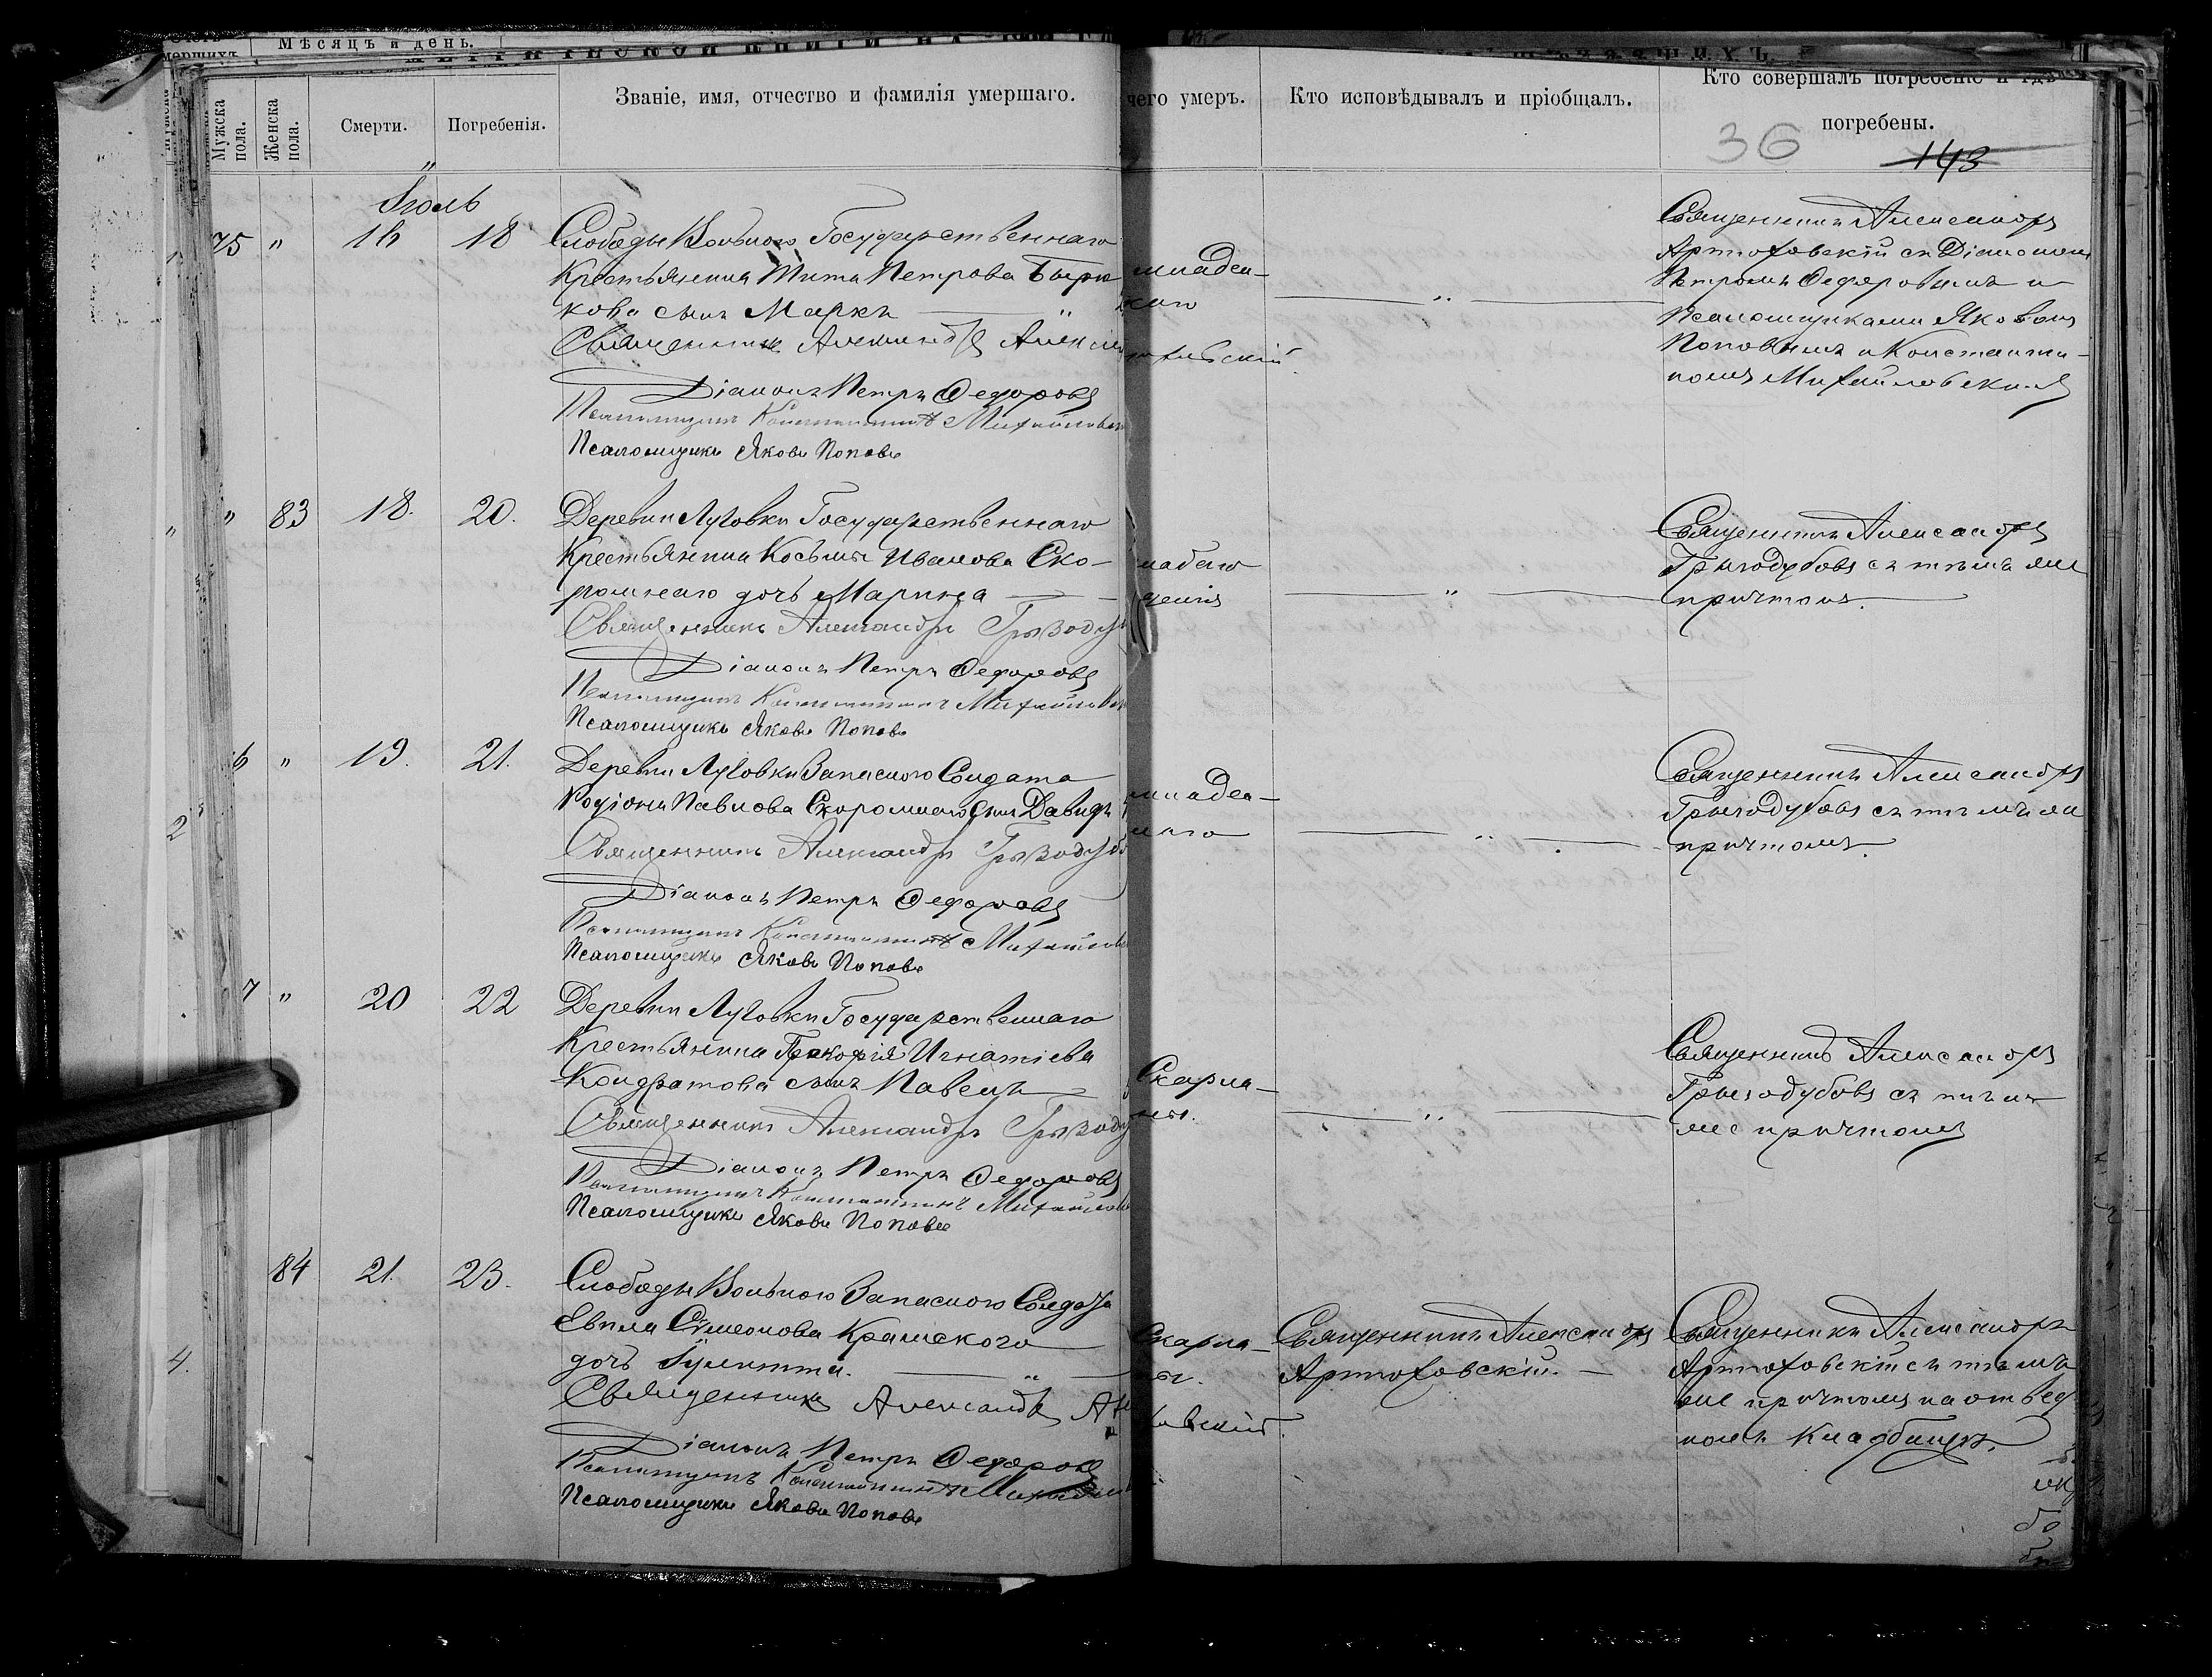 Мѣсяцъ и день.
Мужска пола.
Женска пола.
Смерти.
Погребенія.
Званіе, имя, отчество и фамилія умершаго.
чего умеръ.
Кто исповѣдывалъ и пріобщалъ.
Кто совершалъ погребеніе и гдѣ
погребены.
36
143
Іюль
75 " 16 18
Слободы Вольного Государственнаго
Крестьянина Тита Петрова Бырю
кова сынъ Маркъ
Священникъ Александръ
Діаконъ Петръ Ѳедоровъ
Псаломщикъ Константинъ Михайловск
Псаломщикъ Яковъ Поповъ
младен-
Священникъ Александръ
Артюховскій съ Діакономъ
Петромъ Ѳедоровымъ и
Псаломщиками Яковомъ
Поповымъ и Константи-
номъ Михайловскимъ
" 83 18. 20.
Деревни Луговки Государственнаго
Крестьянина Косьмы Иванова Ско-
ромнаго дочь Марина
Священникъ Александръ Грызодуб
Діаконъ Петръ Ѳедоровъ
Псаломщикъ Константинъ Михайловск
Псаломщикъ Яковъ Поповъ
лабаго
Священникъ Александръ
Грызодубовъ съ тѣмъ же
причтомъ.
6 " 19. 21.
Деревни Луговки Запаснаго Солдата
Родіона Павлова Скоромнаго сынъ Давидъ
Священникъ Александръ Грызодубо
Діаконъ Петръ Ѳедоровъ
Псаломщикъ Константинъ Михайловс
Псаломщикъ Яковъ Поповъ
младен-
Священникъ Александръ
Грызодубовъ съ тѣмъ же
причтомъ.
7 " 20 22
Деревни Луговки Государственнаго
Крестьянина Прокофія Игнатіева
Кондратова сынъ Павелъ
Священникъ Александръ Грызоду
Діаконъ Петръ Ѳедоровъ
Псаломщикъ Константинъ Михайлов
Псаломщикъ Яковъ Поповъ
Скарла-
ны.
Священникъ Александръ
Грызодубовъ съ тѣмъ
же причтомъ
84 21. 23.
Слободы Вольного Запасного Солдата
Евпла Сѵмеонова Крамского
дочь Іулитта.
Священникъ Александръ Ар
Діаконъ Петръ Ѳедоровъ
Псаломщикъ Константинъ Михайлов
Псаломщикъ Яковъ Поповъ
Скарла-
ны.
ховскій.
Священникъ Александръ
Артюховскій.
Священникъ Александръ
Артюховскій съ тѣмъ
же причтомъ на отвед
номъ кладбищѣ.
2
4.